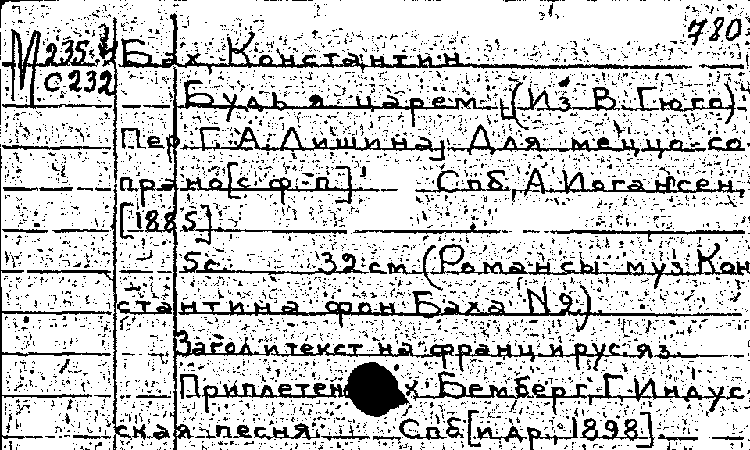 780
М 235/4 Бах, Константин
С 232
Будь я царем. (Из В. Гюго)
Пер. Г. А. Лишина, Для меццо-со
прано [с ф.-п.] Спб, А. Иогансен,
[1885]
5с. 32 см. (Романсы муз. Кон
стантина фон Баха № 2).
Загол. и текст на франц. и рус. яз.
Приплетен к Бемберг, Г. Индус
ская песня. Спб [и др., 1898].